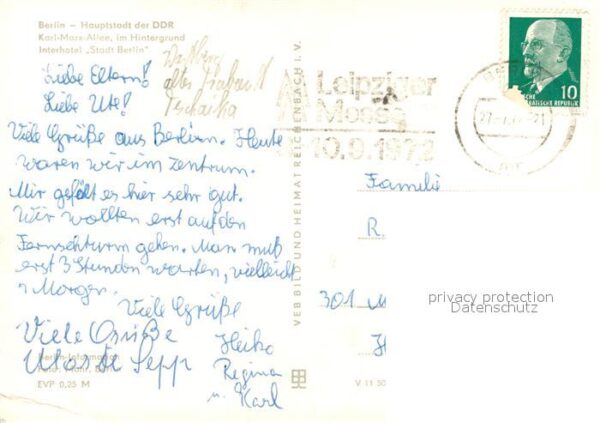 Berlin – Hauptstadt der DDR
Karl-Marx-Allee, im Hintergrund
Interhotel „Stadt Berlin"
Liebe Eltern!
Liebe Ute!
Viele Grüße aus Berlin. Heute
waren wir im Zentrum.
Mir gefält es hier sehr gut.
Wir wollten erst auf den
Fernsehturm gehen. Man muß
erst 3 Stunden warten, vielleicht
Morgen.
Viele Grüße
Viele Grüße
Heiko
Sepp
Regina
u. Karl
Berlin-Information
EVP 0,25 M
VEB BILD UND HEIMAT REICHENBACH I. V.
V 11 50
Leipziger
Messe
10.9.1972
10
DEUTSCHE
DEMOKRATISCHE REPUBLIK
Familie
R
301 M
H
privacy protection
Datenschutz